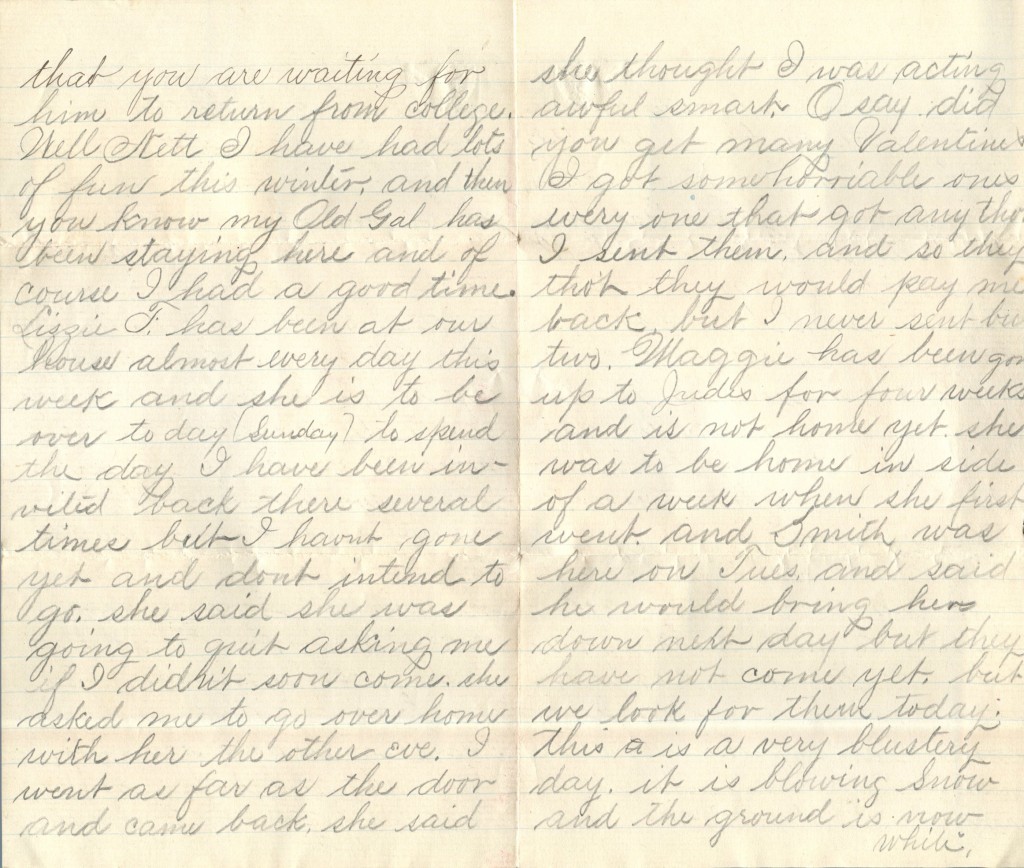 that you are waiting for
him to return from college.
Well Nett I have had lots
of fun this winter, and then
you know my Old Gal has
been staying here and of
course I had a good time.
Lizzie F. has been at our
house almost every day this
week and she is to be
over to day (Sunday) to spend
the day. I have been in-
vited back there several
times but I havnt gone
yet and dont intend to
go. she said she was
going to quit asking me
if I didn't soon come. she
asked me to go over home
with her the other eve. I
went as far as the door
and came back. she said
she thought I was acting
awful smart. O say did
you get many Valentines
I got some horriable ones
every one that got any tho
I sent them. and so they
thot they would pay me
back, but I never sent but
two. Maggie has been gon
up to Judes for four weeks
and is not home yet. she
was to be home in side
of a week when she first
went. and Smith was
here on Tues. and said
he would bring her
down next day but they
have not come yet. but
we look for them today.
this a is a very blustery
day. it is blowing Snow
and the ground is now
white.